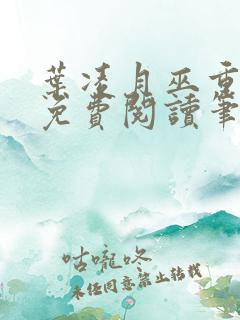 葉凌月巫重
免費閱讀筆
咕嚨咚
未經同意禁止轉載